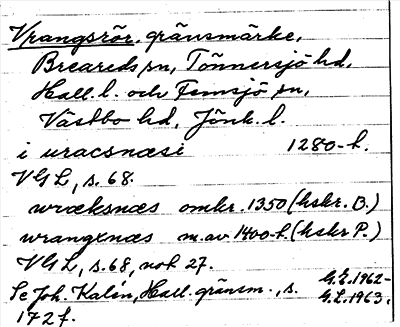 Vrangsrör, gränsmärke,
Breareds sn, Tönnersjö hd,
Hall. l. och Femsjö sn,
Västbo hd, Jönk. l.
i uracsnæsi 1280-t.
VGL, s. 68.
wræksnæs omkr. 1350 (hskr. B.)
wrangxnæs m. av 1400-t. (hskr P.)
VGL, s. 68, not 27.
Se Joh. Kalén, Hall. gränsm., s.
172 f.
G.E. 1962-
G.L. 1963.